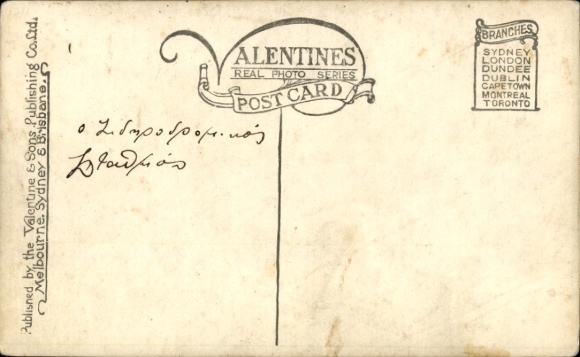 VALENTINES
REAL PHOTO SERIES
POST CARD
BRANCHES
SYDNEY
LONDON
DUNDEE
DUBLIN
CAPETOWN
MONTREAL
TORONTO
ο Σιδηροδρομικός
Σταθμός
Published by the Valentine & Sons Publishing Co. Ltd.
Melbourne. Sydney & Brisbane.